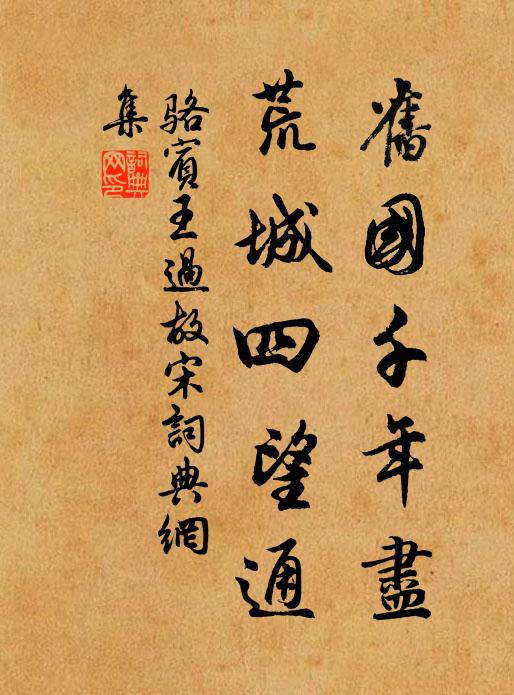 舊國千年盡
荒城四望通
駱賓王過故宋詞典網
集
詞典网印